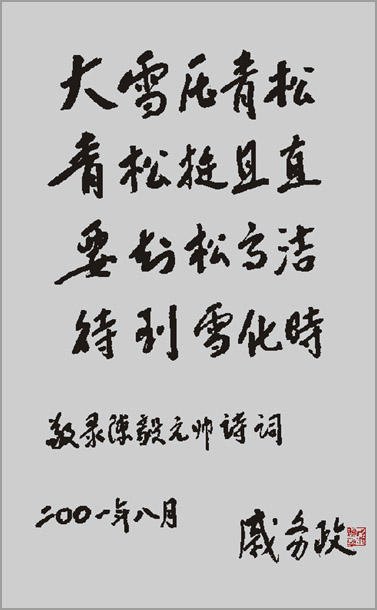 大雪压青松
青松挺且直
要知松高洁
待到雪化時
敬录陳毅元帅詩词
二〇〇一年八月
戚务政